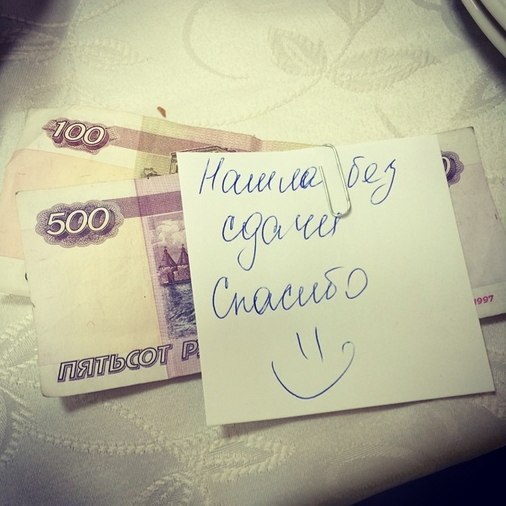 100
500
ПЯТЬСОТ Р
1997
Нашла без
сдачи
Спасибо